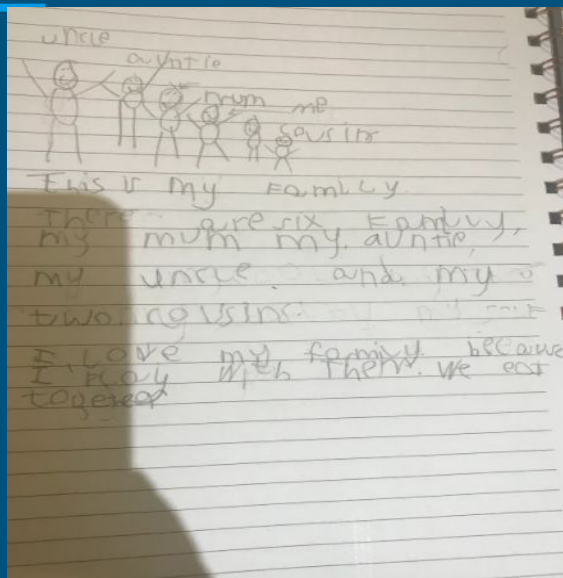 uncle
auntie
mum me
cousin
This is my Family
There are six Family,
my mum my auntie,
my uncle. and my
two cousins.
I LOVE my family because
I Play with them. We eat
togeted